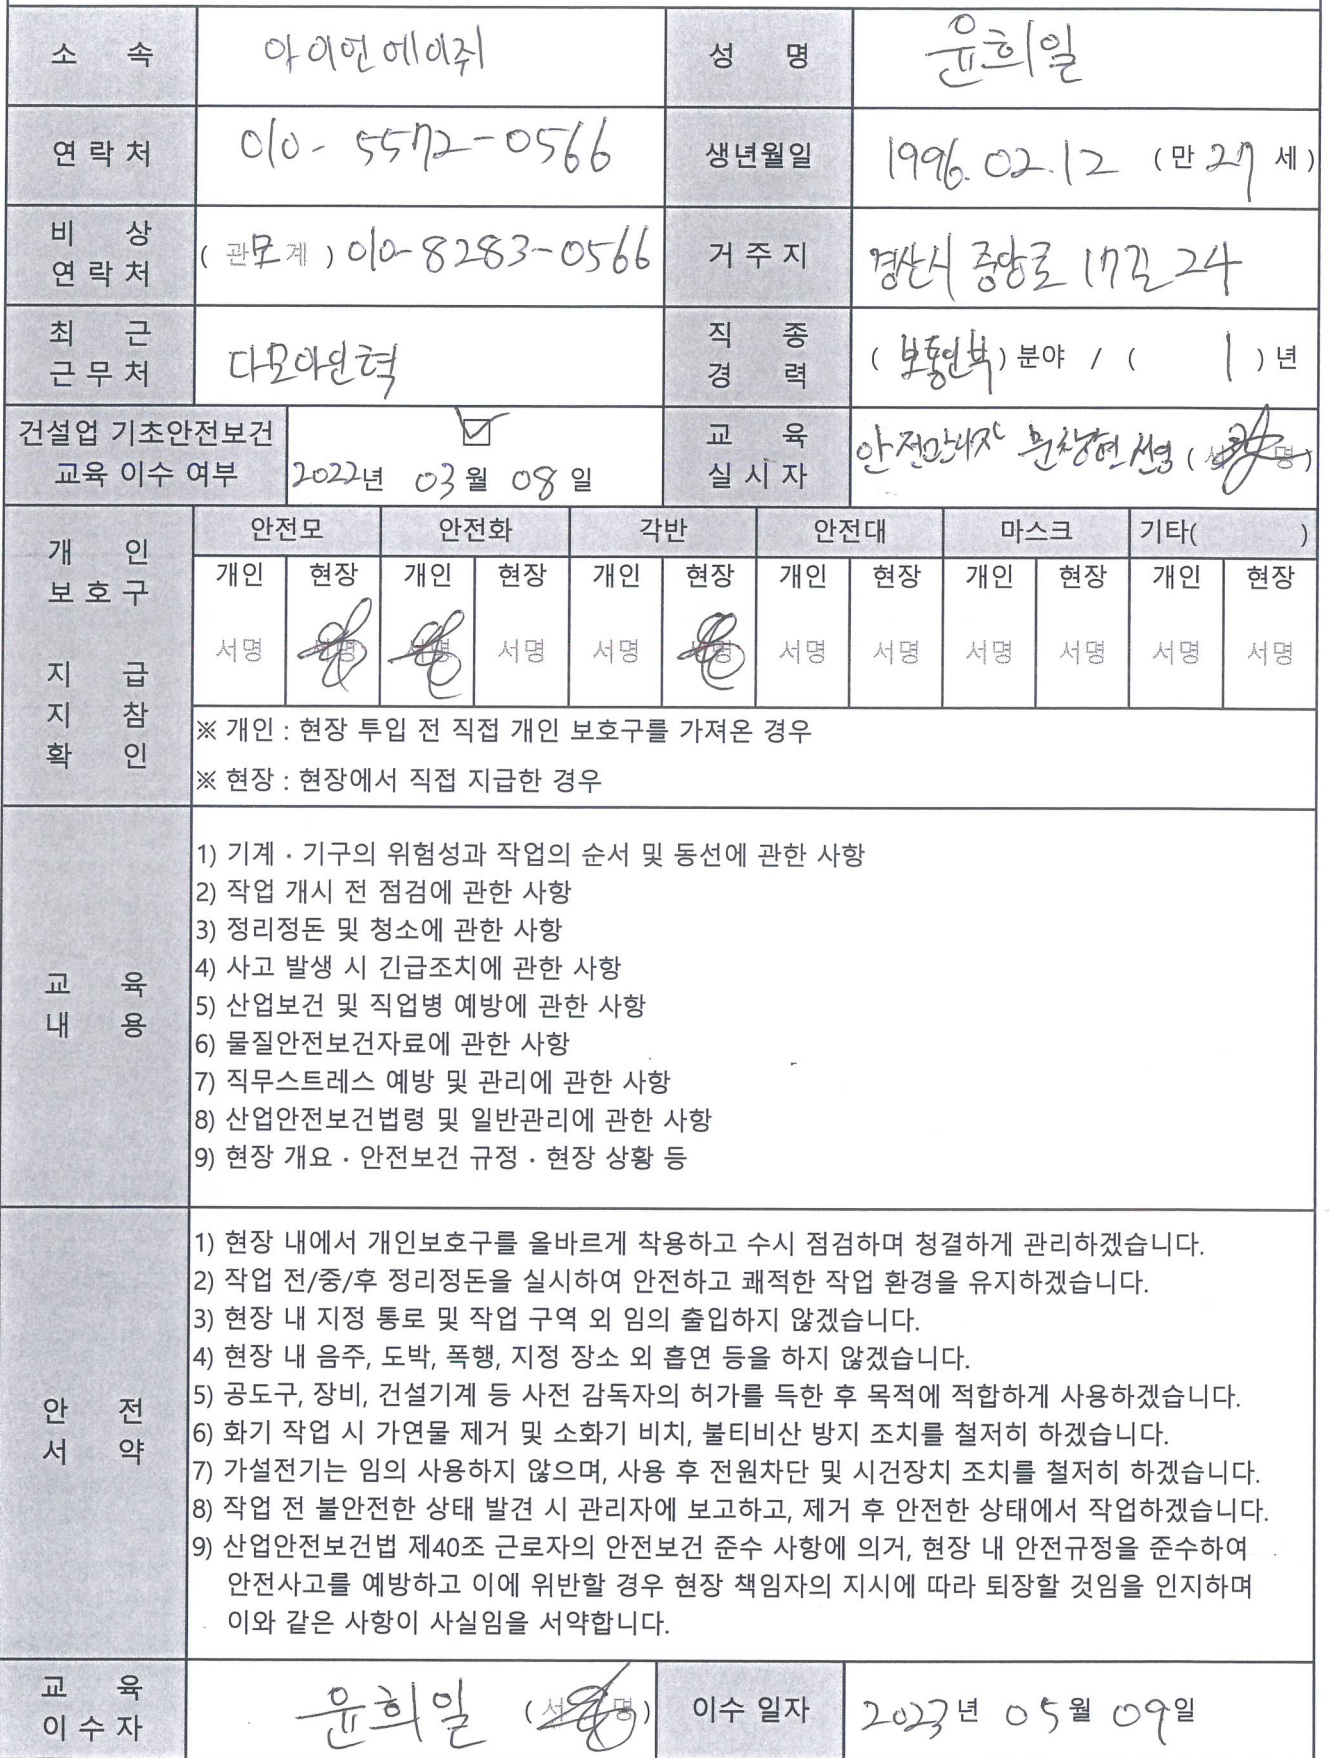 소 속 아이언에이쥐 성 명 윤희일
연락처 010-5572-0566 생년월일 1996.02.12 (만 27 세)
비 상
연락처 (관계) 모 010-8283-0566 거주지 경산시 중앙로 17길 24
최 근
근무처 다모아인력 직 종
경 력 (보통인부) 분야 / ( 1 ) 년
건설업 기초안전보건
교육 이수 여부 2022년 03월 08일 교 육
실시자 안전관리자 문창현 (서명)
개 인
보호구
지 급
지 참
확 인
안전모 안전화 각반 안전대 마스크 기타( )
개인 현장 개인 현장 개인 현장 개인 현장 개인 현장 개인 현장
서명 서명 서명 서명 서명 서명 서명 서명 서명 서명 서명 서명
※ 개인 : 현장 투입 전 직접 개인 보호구를 가져온 경우
※ 현장 : 현장에서 직접 지급한 경우
교 육
내 용
1) 기계 · 기구의 위험성과 작업의 순서 및 동선에 관한 사항
2) 작업 개시 전 점검에 관한 사항
3) 정리정돈 및 청소에 관한 사항
4) 사고 발생 시 긴급조치에 관한 사항
5) 산업보건 및 직업병 예방에 관한 사항
6) 물질안전보건자료에 관한 사항
7) 직무스트레스 예방 및 관리에 관한 사항
8) 산업안전보건법령 및 일반관리에 관한 사항
9) 현장 개요 · 안전보건 규정 · 현장 상황 등
안 전
서 약
1) 현장 내에서 개인보호구를 올바르게 착용하고 수시 점검하며 청결하게 관리하겠습니다.
2) 작업 전/중/후 정리정돈을 실시하여 안전하고 쾌적한 작업 환경을 유지하겠습니다.
3) 현장 내 지정 통로 및 작업 구역 외 임의 출입하지 않겠습니다.
4) 현장 내 음주, 도박, 폭행, 지정 장소 외 흡연 등을 하지 않겠습니다.
5) 공도구, 장비, 건설기계 등 사전 감독자의 허가를 득한 후 목적에 적합하게 사용하겠습니다.
6) 화기 작업 시 가연물 제거 및 소화기 비치, 불티비산 방지 조치를 철저히 하겠습니다.
7) 가설전기는 임의 사용하지 않으며, 사용 후 전원차단 및 시건장치 조치를 철저히 하겠습니다.
8) 작업 전 불안전한 상태 발견 시 관리자에 보고하고, 제거 후 안전한 상태에서 작업하겠습니다.
9) 산업안전보건법 제40조 근로자의 안전보건 준수 사항에 의거, 현장 내 안전규정을 준수하여
안전사고를 예방하고 이에 위반할 경우 현장 책임자의 지시에 따라 퇴장할 것임을 인지하며
이와 같은 사항이 사실임을 서약합니다.
교 육
이수자 윤희일 (서명) 이수 일자 2023년 05월 09일